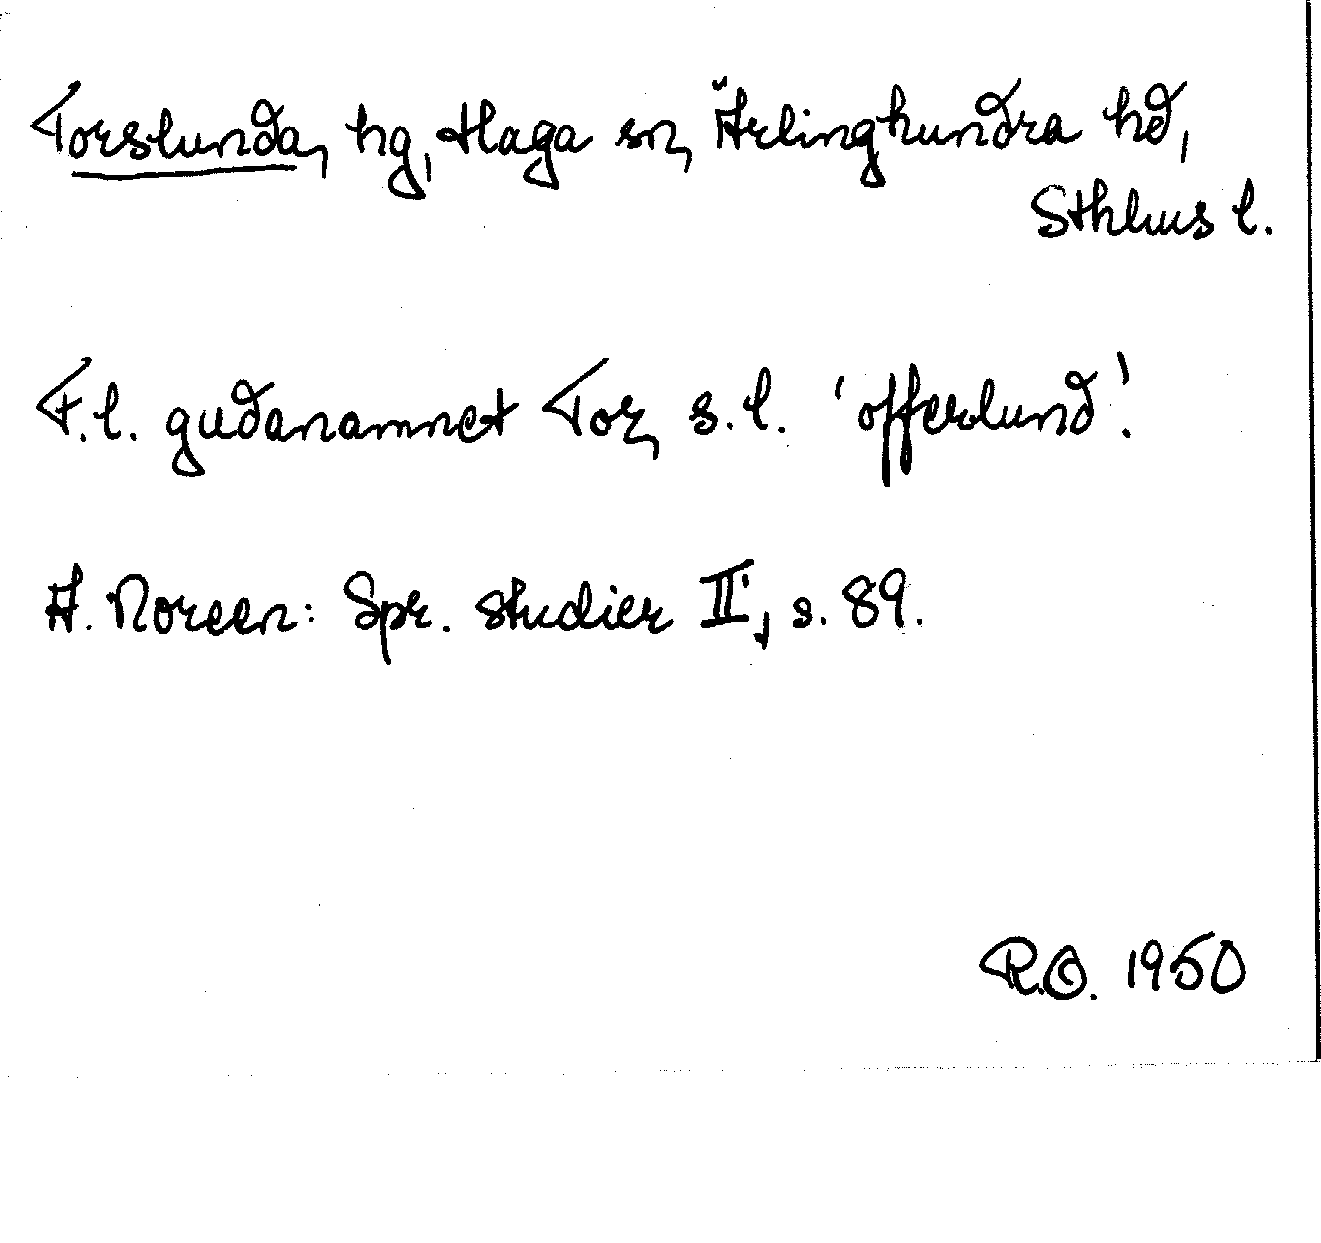 Torslunda, hg, Haga sn, Ärlinghundra hd,
Sthlms l.
F.l. gudanamnet Tor, s.l. 'offerlund'.
A. Noreen: Spr. studier II, s. 89.
R.O. 1950